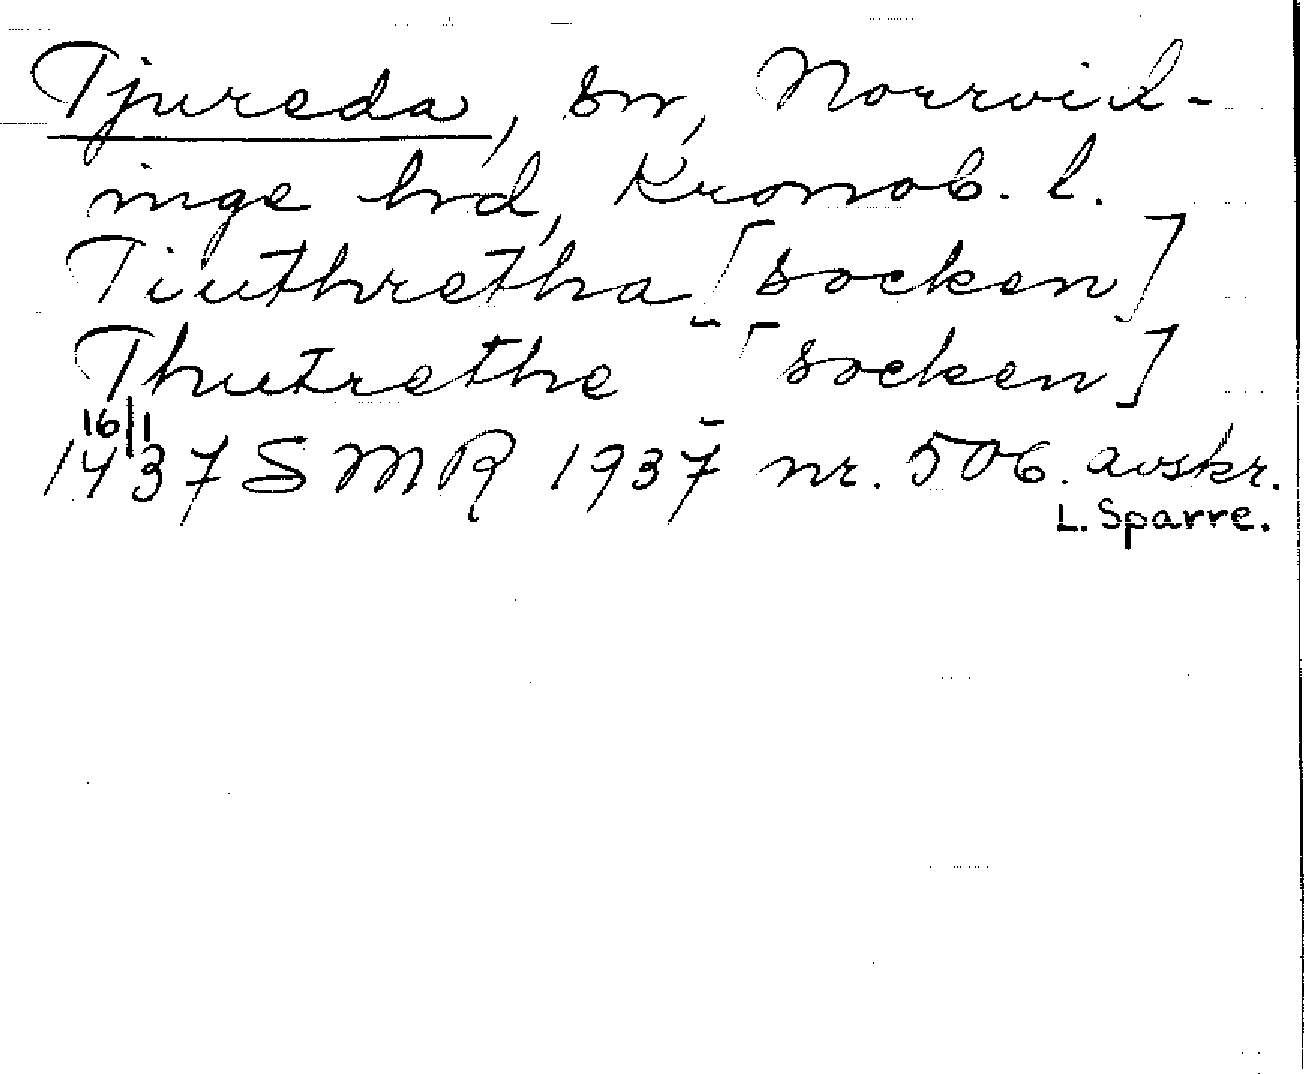 Tjureda, sn, Norrvid-
inge hrd, Kronob. l.
Tiuthretha [socken]
Thutrethe [socken]
16/1
1437 SMR 1937 nr. 506. avskr.
L. Sparre.